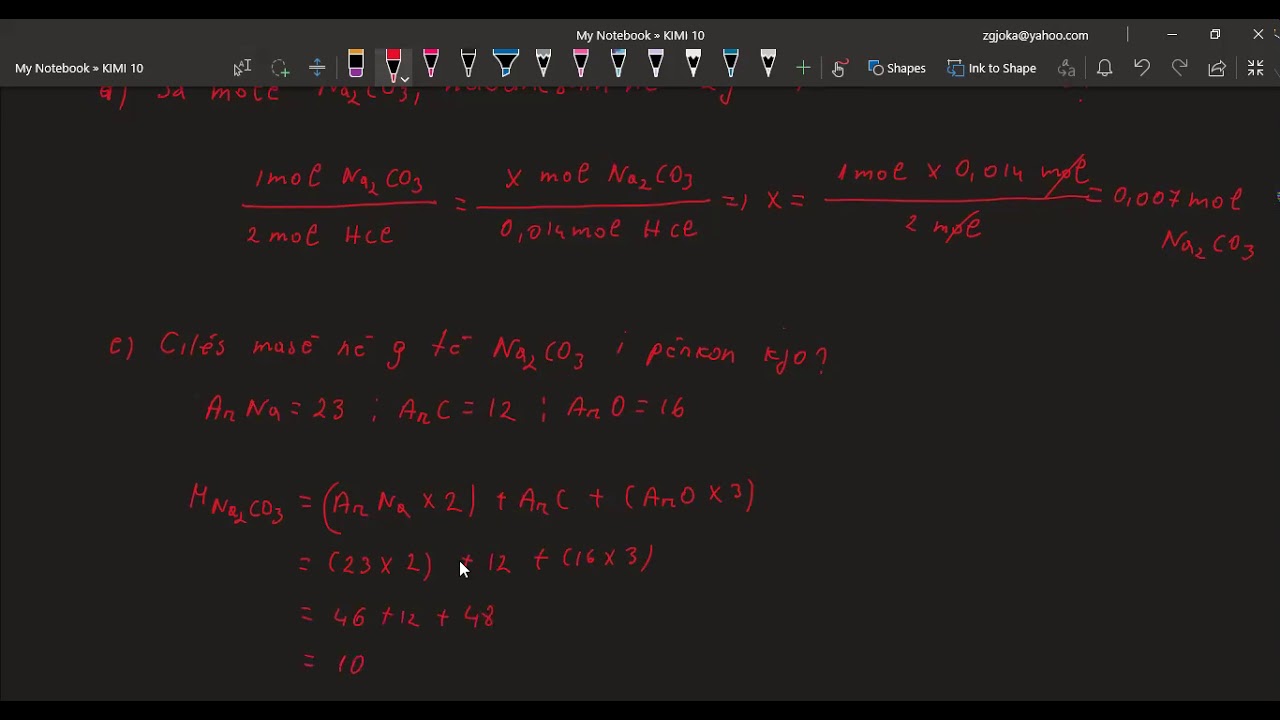 My Notebook » KIMI 10
zgjoka@yahoo.com
My Notebook » KIMI 10
Shapes
Ink to Shape
Sa mole Na2CO3,
1mol Na2CO3 / 2 mol HCl = x mol Na2CO3 / 0,014mol HCl => x = 1mol x 0,014 mol / 2 mol = 0,007mol
Na2CO3
e) Cilës masë në g të Na2CO3 i përkon kjo?
Ar Na = 23 ; Ar C = 12 ; Ar O = 16
M Na2CO3 = (Ar Na x 2) + Ar C + (Ar O x 3)
= (23 x 2) + 12 + (16 x 3)
= 46 + 12 + 48
= 10